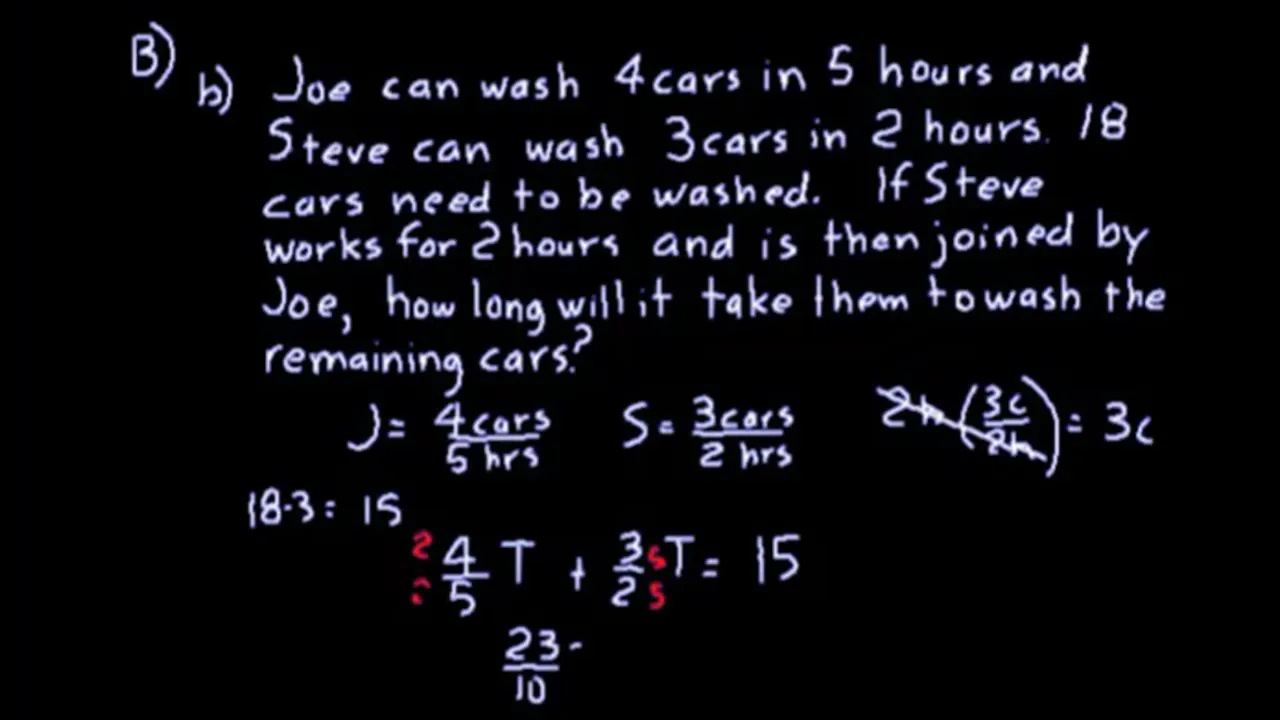 B)
b) Joe can wash 4 cars in 5 hours and
Steve can wash 3 cars in 2 hours. 18
cars need to be washed. If Steve
works for 2 hours and is then joined by
Joe, how long will it take them to wash the
remaining cars?
J = 4 cars / 5 hrs   S = 3 cars / 2 hrs   2h (3c / 2h) = 3c
18-3 = 15
2/2 4/5 T + 3/2 5/5 T = 15
23/10